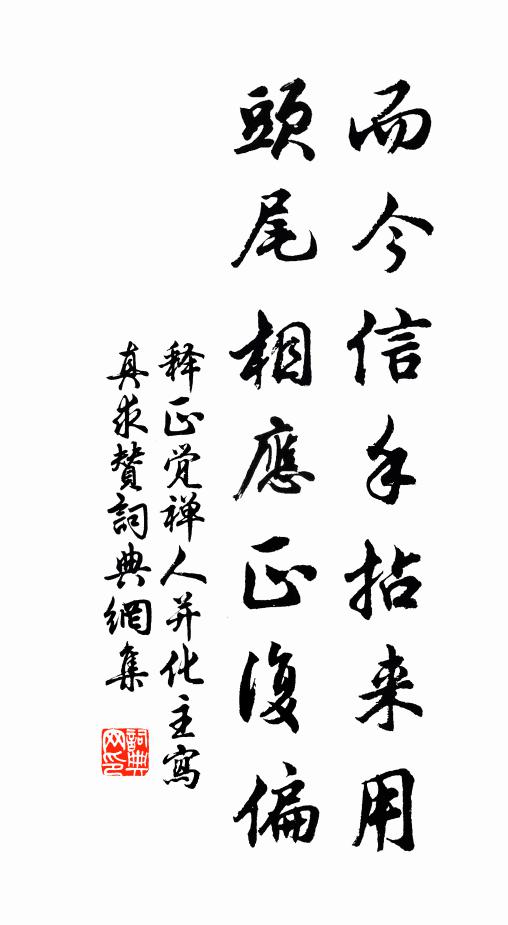 而今信手拈来用
頭尾相應正復偏
释正觉禅人并化主寫
真求贊詞典網集
詞典网印